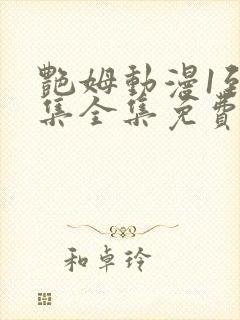 艷姆動漫1至
集全集免費
和卓玲